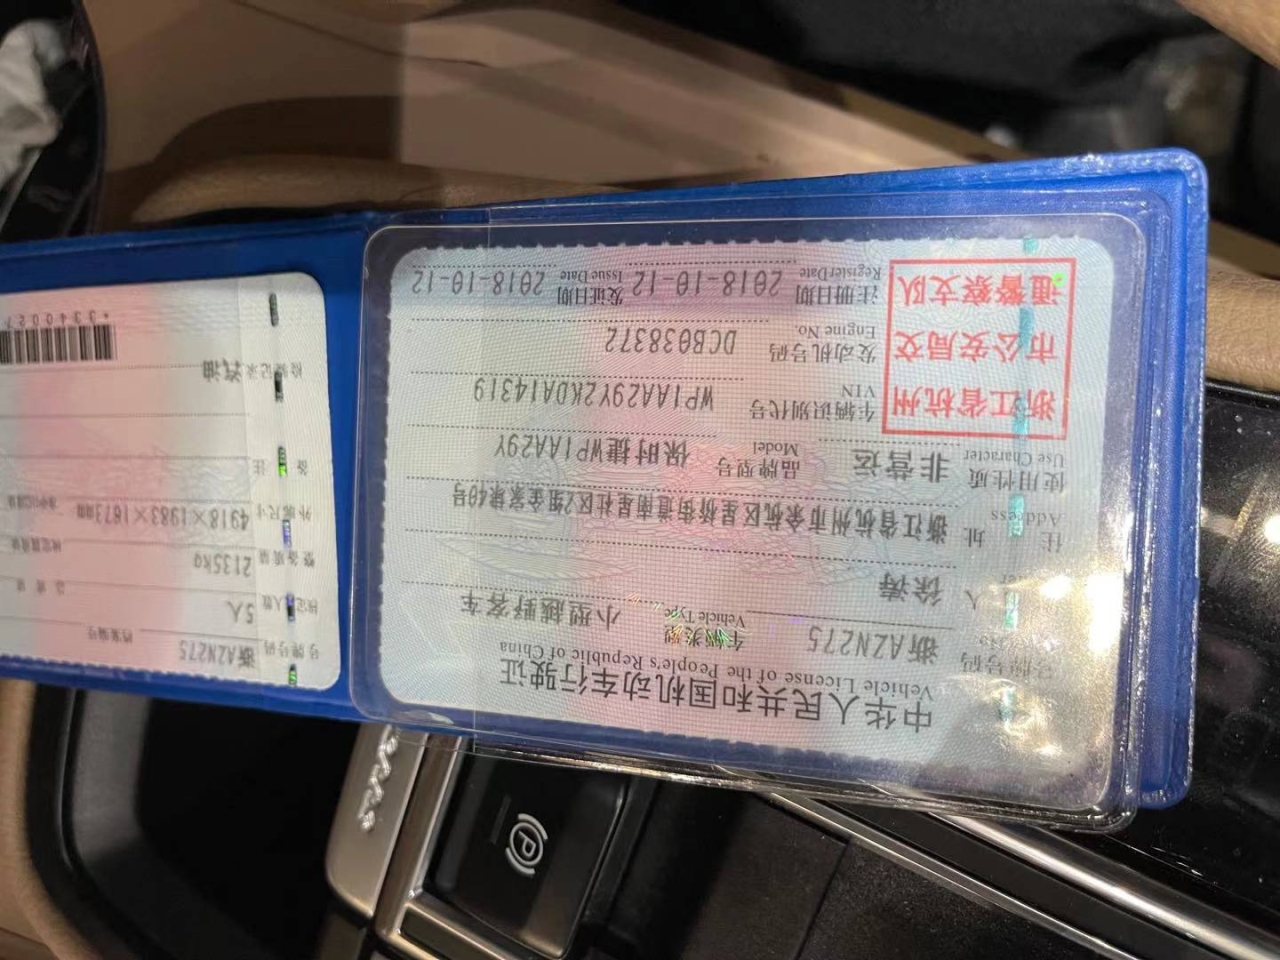 中华人民共和国机动车行驶证
Vehicle License of the People's Republic of China
号牌号码 浙AZN275 车辆类型 小型越野客车
Vehicle Type
人 徐涛
住 址 浙江省杭州市余杭区星桥街道南星社区2组金家塅40号
Address
使用性质 非营运 品牌型号 保时捷WP1AA29Y
Use Character Model
浙江省杭州
市公安局交
通警察支队
车辆识别代号 WP1AA29Y2KDA14319
VIN
发动机号码 DCB038372
Engine No.
注册日期 2018-10-12 发证日期 2018-10-12
Register Date Issue Date
号牌号码 浙AZN275 档案编号
核定人数 5人 总质量
整备质量 2135kg 核定载质量
外廓尺寸 4918×1983×1673mm
备 注
检验记录 汽油